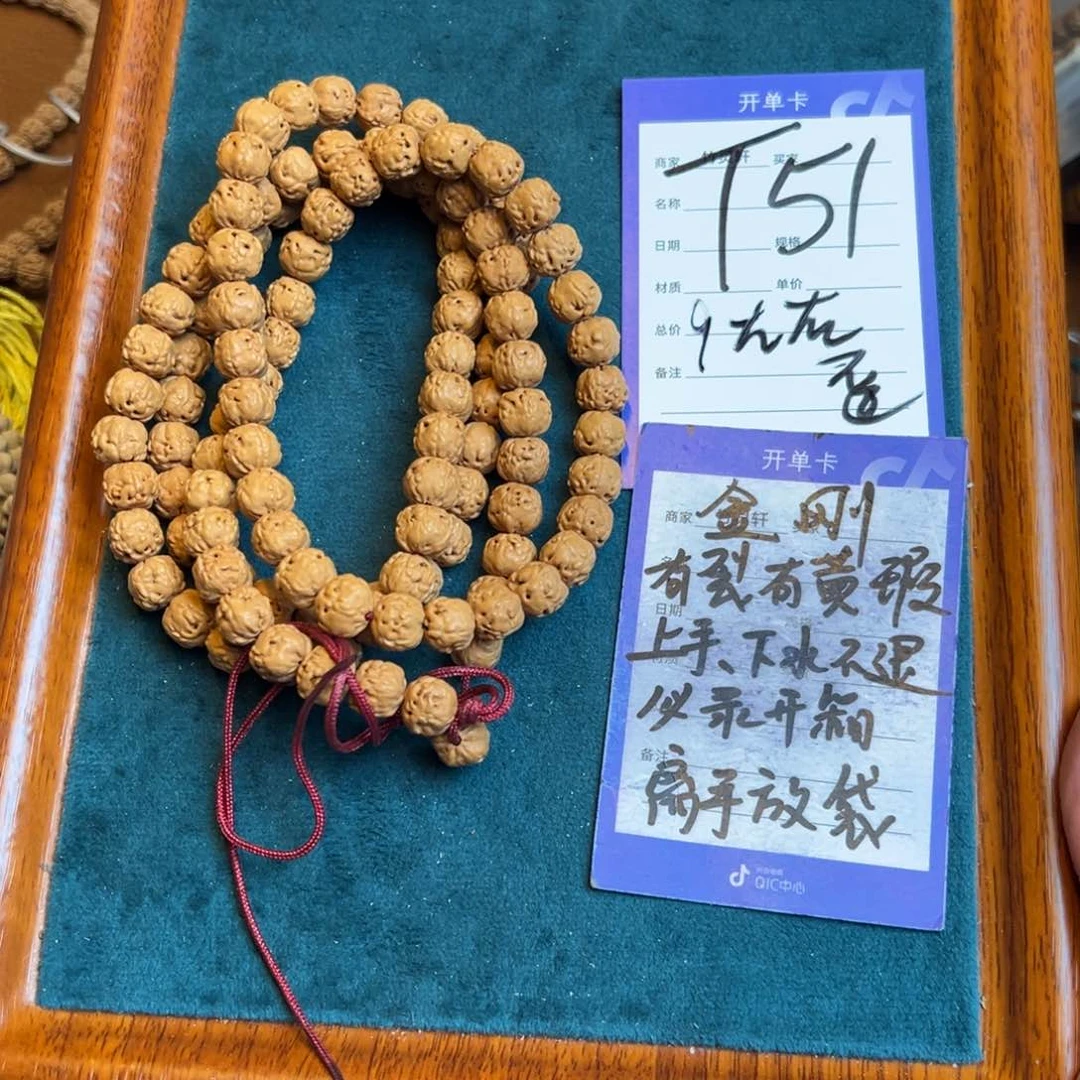 开单卡
商家 买家
T51
名称
日期 规格
材质 单价
总价
9大左右
备注
开单卡
商家 轩
金刚
有裂有黄瑕
日期
上手、下水不退
必录开箱
备注
扁平放袋
QIC中心